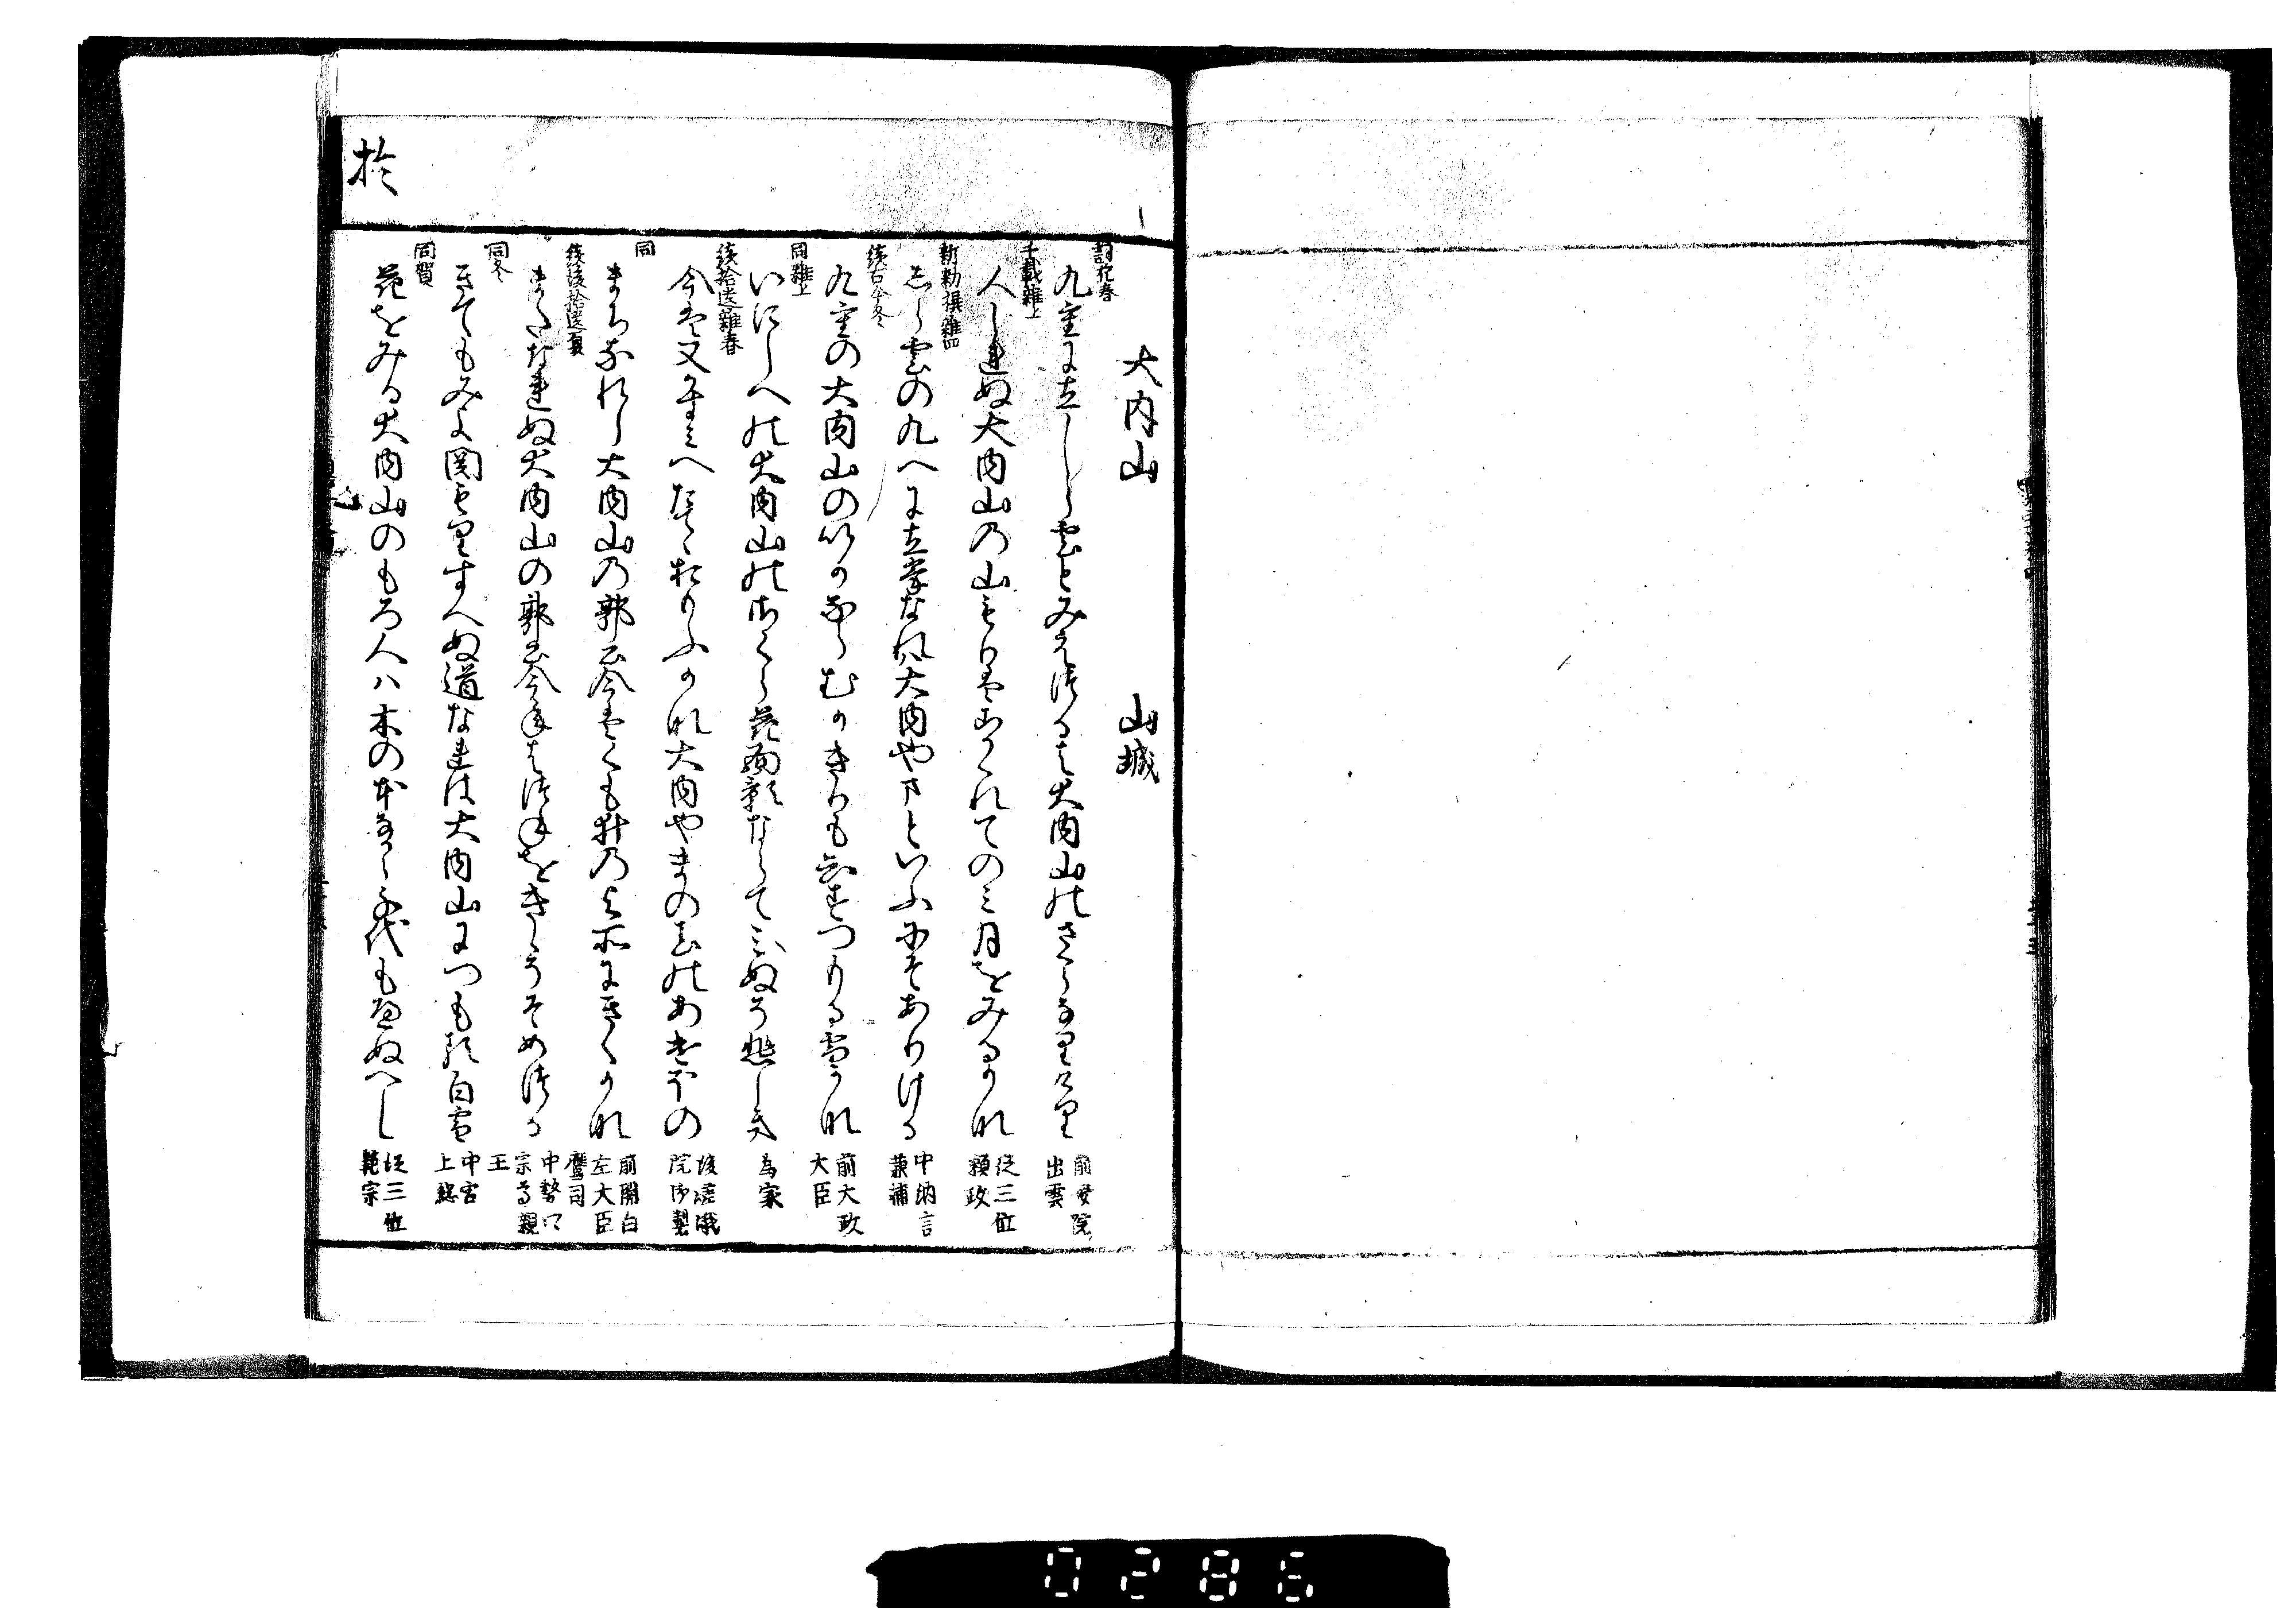 於
大内山　山城
詞花春
九重に立しら雲とみえつるは大内山のさくらなりけり
前斎院出雲
千載雑上
人しれぬ大内山の山もりはこかくれてのみ月をみるかな
従三位頼政
新勅撰雑四
しら雲の九へに立峯なれは大内やまといふにそありける
中納言兼輔
続古今冬
九重の大内山のいかならむかきりもしらすつもる雪かな
前大政大臣
同雑上
いにしへの大内山のさくら花面影ならてみぬそ悲しき
為家
続拾遺雑春
今は又かすみへたてゝおもふかな大内やまの春のあけほの
後嵯峨院御製
同
まちなれし大内山の郭公今はくものよ所にきくかな
前関白左大臣鷹司
続後拾遺夏
またなれぬ大内山の郭公今年はつ年をきゝそそめつる
中務卿宗尊親王
同冬
きてもみよ関もりすへぬ道なれは大内山につもる白雪
中宮上総
同賀
花をみる大内山のもろ人ハ木の本なから千代もへぬへし
従三位範宗
0286